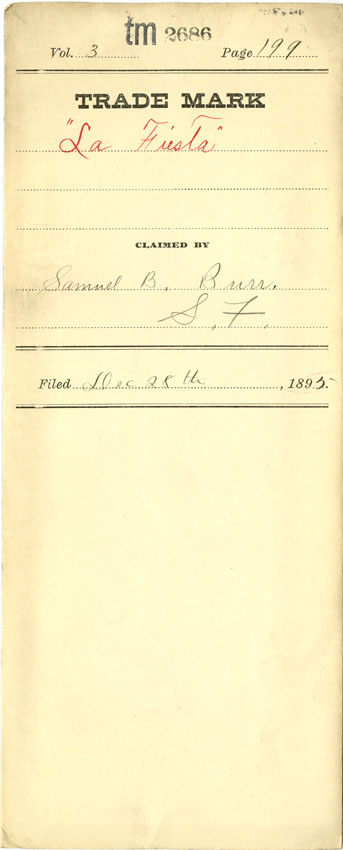 tm 2686
Vol. 3 Page 199
TRADE MARK
"La Fiesta"
CLAIMED BY
Samuel B. Burr.
S. F.
Filed Dec 28th, 1895.